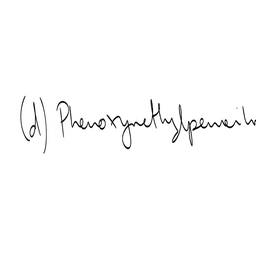 (d) Phenoxymethylpenicilin